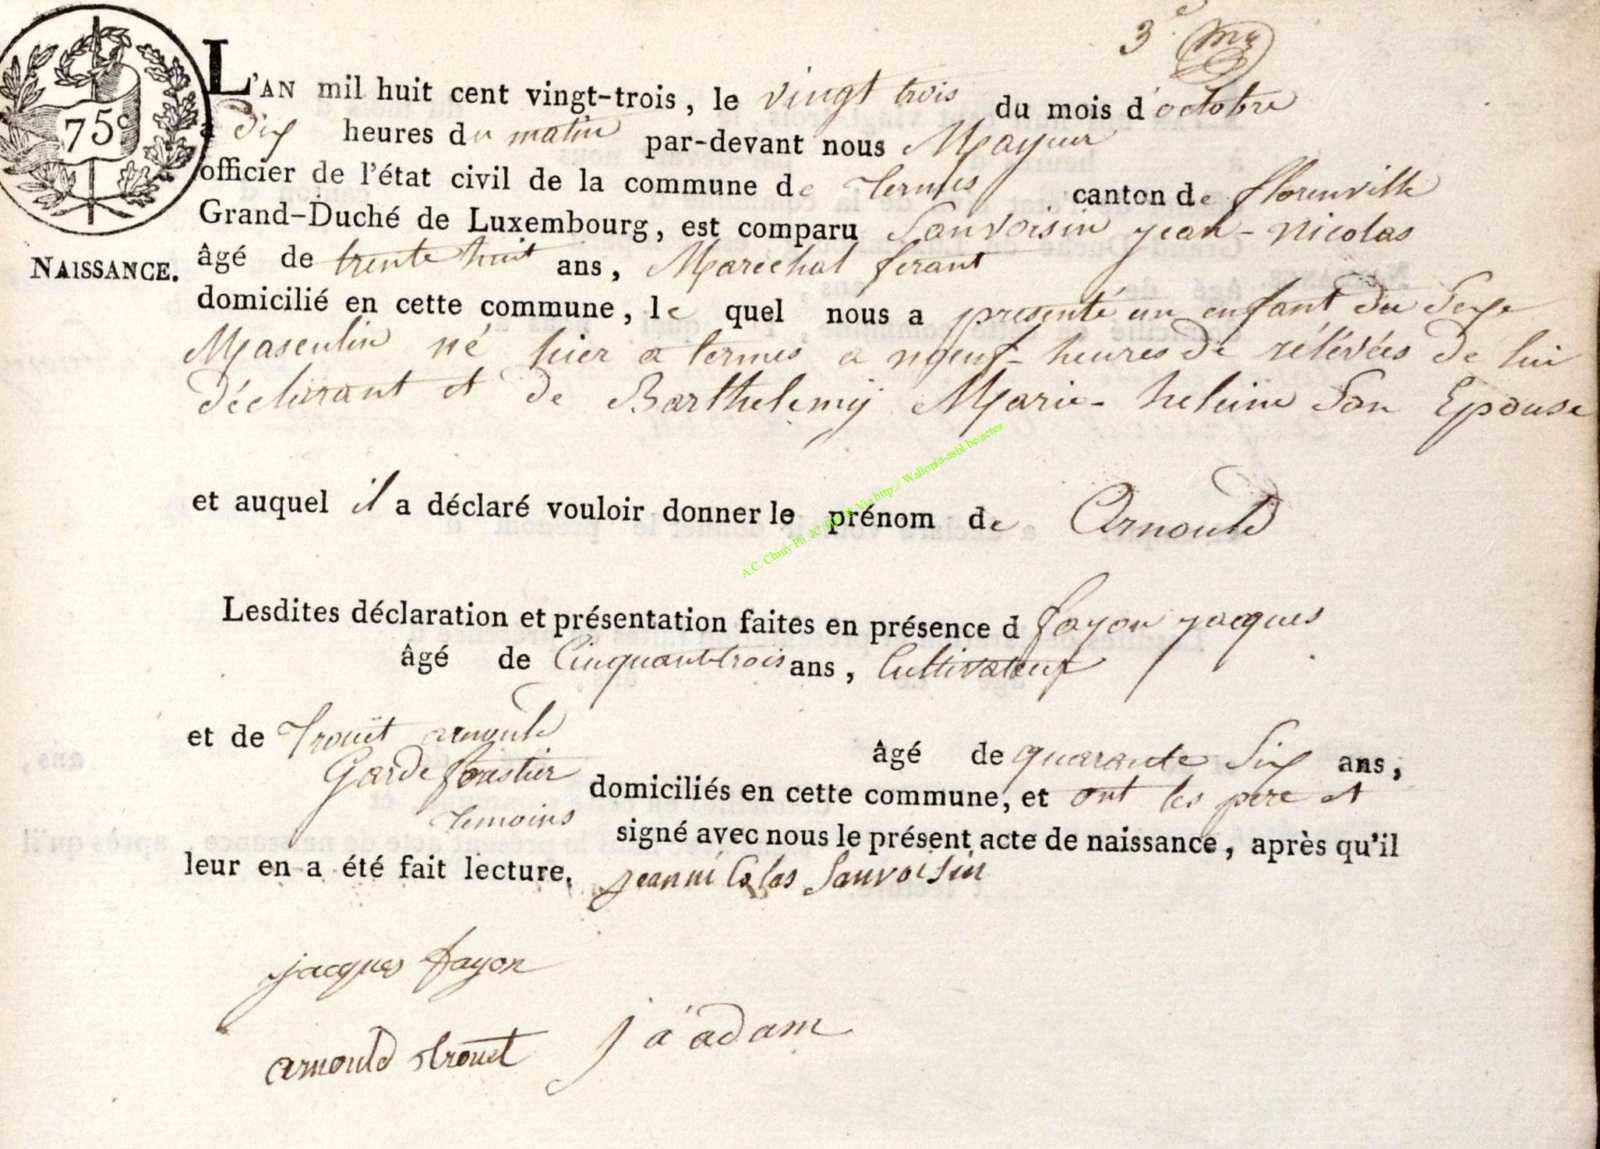 3e
75c
L'AN mil huit cent vingt-trois, le vingt trois du mois d'octobre
a dix heures du matin par-devant nous Mayeur
officier de l'état civil de la commune de termes canton de florenville
Grand-Duché de Luxembourg, est comparu Sauvoisin jean-nicolas
NAISSANCE.
âgé de trente huit ans, Marechal ferant
domicilié en cette commune, le quel nous a presenté un enfant du Sexe
Masculin né hier a termes a neuf heures de rélévées de lui
déclarant et de Barthelemÿ Marie-heleine Son Epouse
et auquel il a déclaré vouloir donner le prénom de Arnould
Lesdites déclaration et présentation faites en présence d fayon jacques
âgé de Cinquant-trois ans, Cultivateur
et de trouët arnould âgé de quarante Six ans,
Garde forestier domiciliés en cette commune, et ont les pere et
temoins signé avec nous le présent acte de naissance, après qu'il
leur en a été fait lecture. jeannicolas Sauvoisin
jacques fayon
arnould trouet j a adam